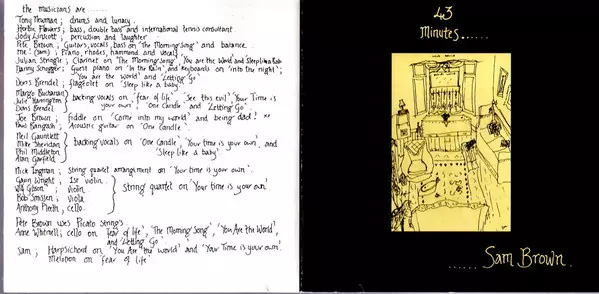 the musicians are ......
Tony Newman; drums and lunacy.
Herbie Flowers; bass, double bass and international tennis consultant.
Jody Linscott; percussion and laughter.
Pete Brown; Guitars, vocals, bass on 'The Morning Song' and balance.
me! (sam); Piano, rhodes, hammond and vocals
Julian Stringle; Clarinet on 'The Morning Song', You are the World and Sleep Like a Baby
Danny Schogger; Guest piano on 'In the Rain' and keyboards on 'into the night';
'You are the world' and 'Letting Go'
Doris Brendel; flageolet on 'Sleep like a baby'.
Margo Buchanan
Julie Harrington
Doris Brendel
backing vocals on 'fear of life', 'See this evil', 'Your Time is your own', 'One Candle' and 'Letting Go'.
Joe Brown; fiddle on 'Come into my world' and being dad! **
Paul Bangash; Acoustic guitar on 'One Candle'.
Neil Gauntlett
Mike Sheridan
Phil Middleton
Alan Garfield
backing vocals on 'One Candle', 'Your time is your own', and 'Sleep like a baby'
Nick Ingman; String quartet arrangement on 'Your time is your own'.
Gavin Wright; 1st violin.
Wilf Gibson; Violin
Bob Smissen; Viola
Anthony Pleeth; cello.
String quartet on 'Your time is your own'.
Pete Brown uses Picato Strings
Anne Whitnell; cello on 'fear of life', 'The Morning Song', 'You Are the World', and 'Letting Go'
Sam; Harpsichord on 'You Are the world' and 'Your Time is your own'.
Melotron on 'fear of life'
43
minutes......
...... Sam Brown.